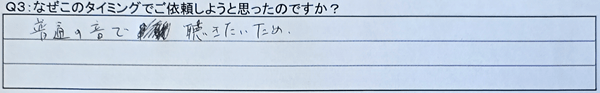 Q3:なぜこのタイミングでご依頼しようと思ったのですか?
普通の音で 聴きたいため.